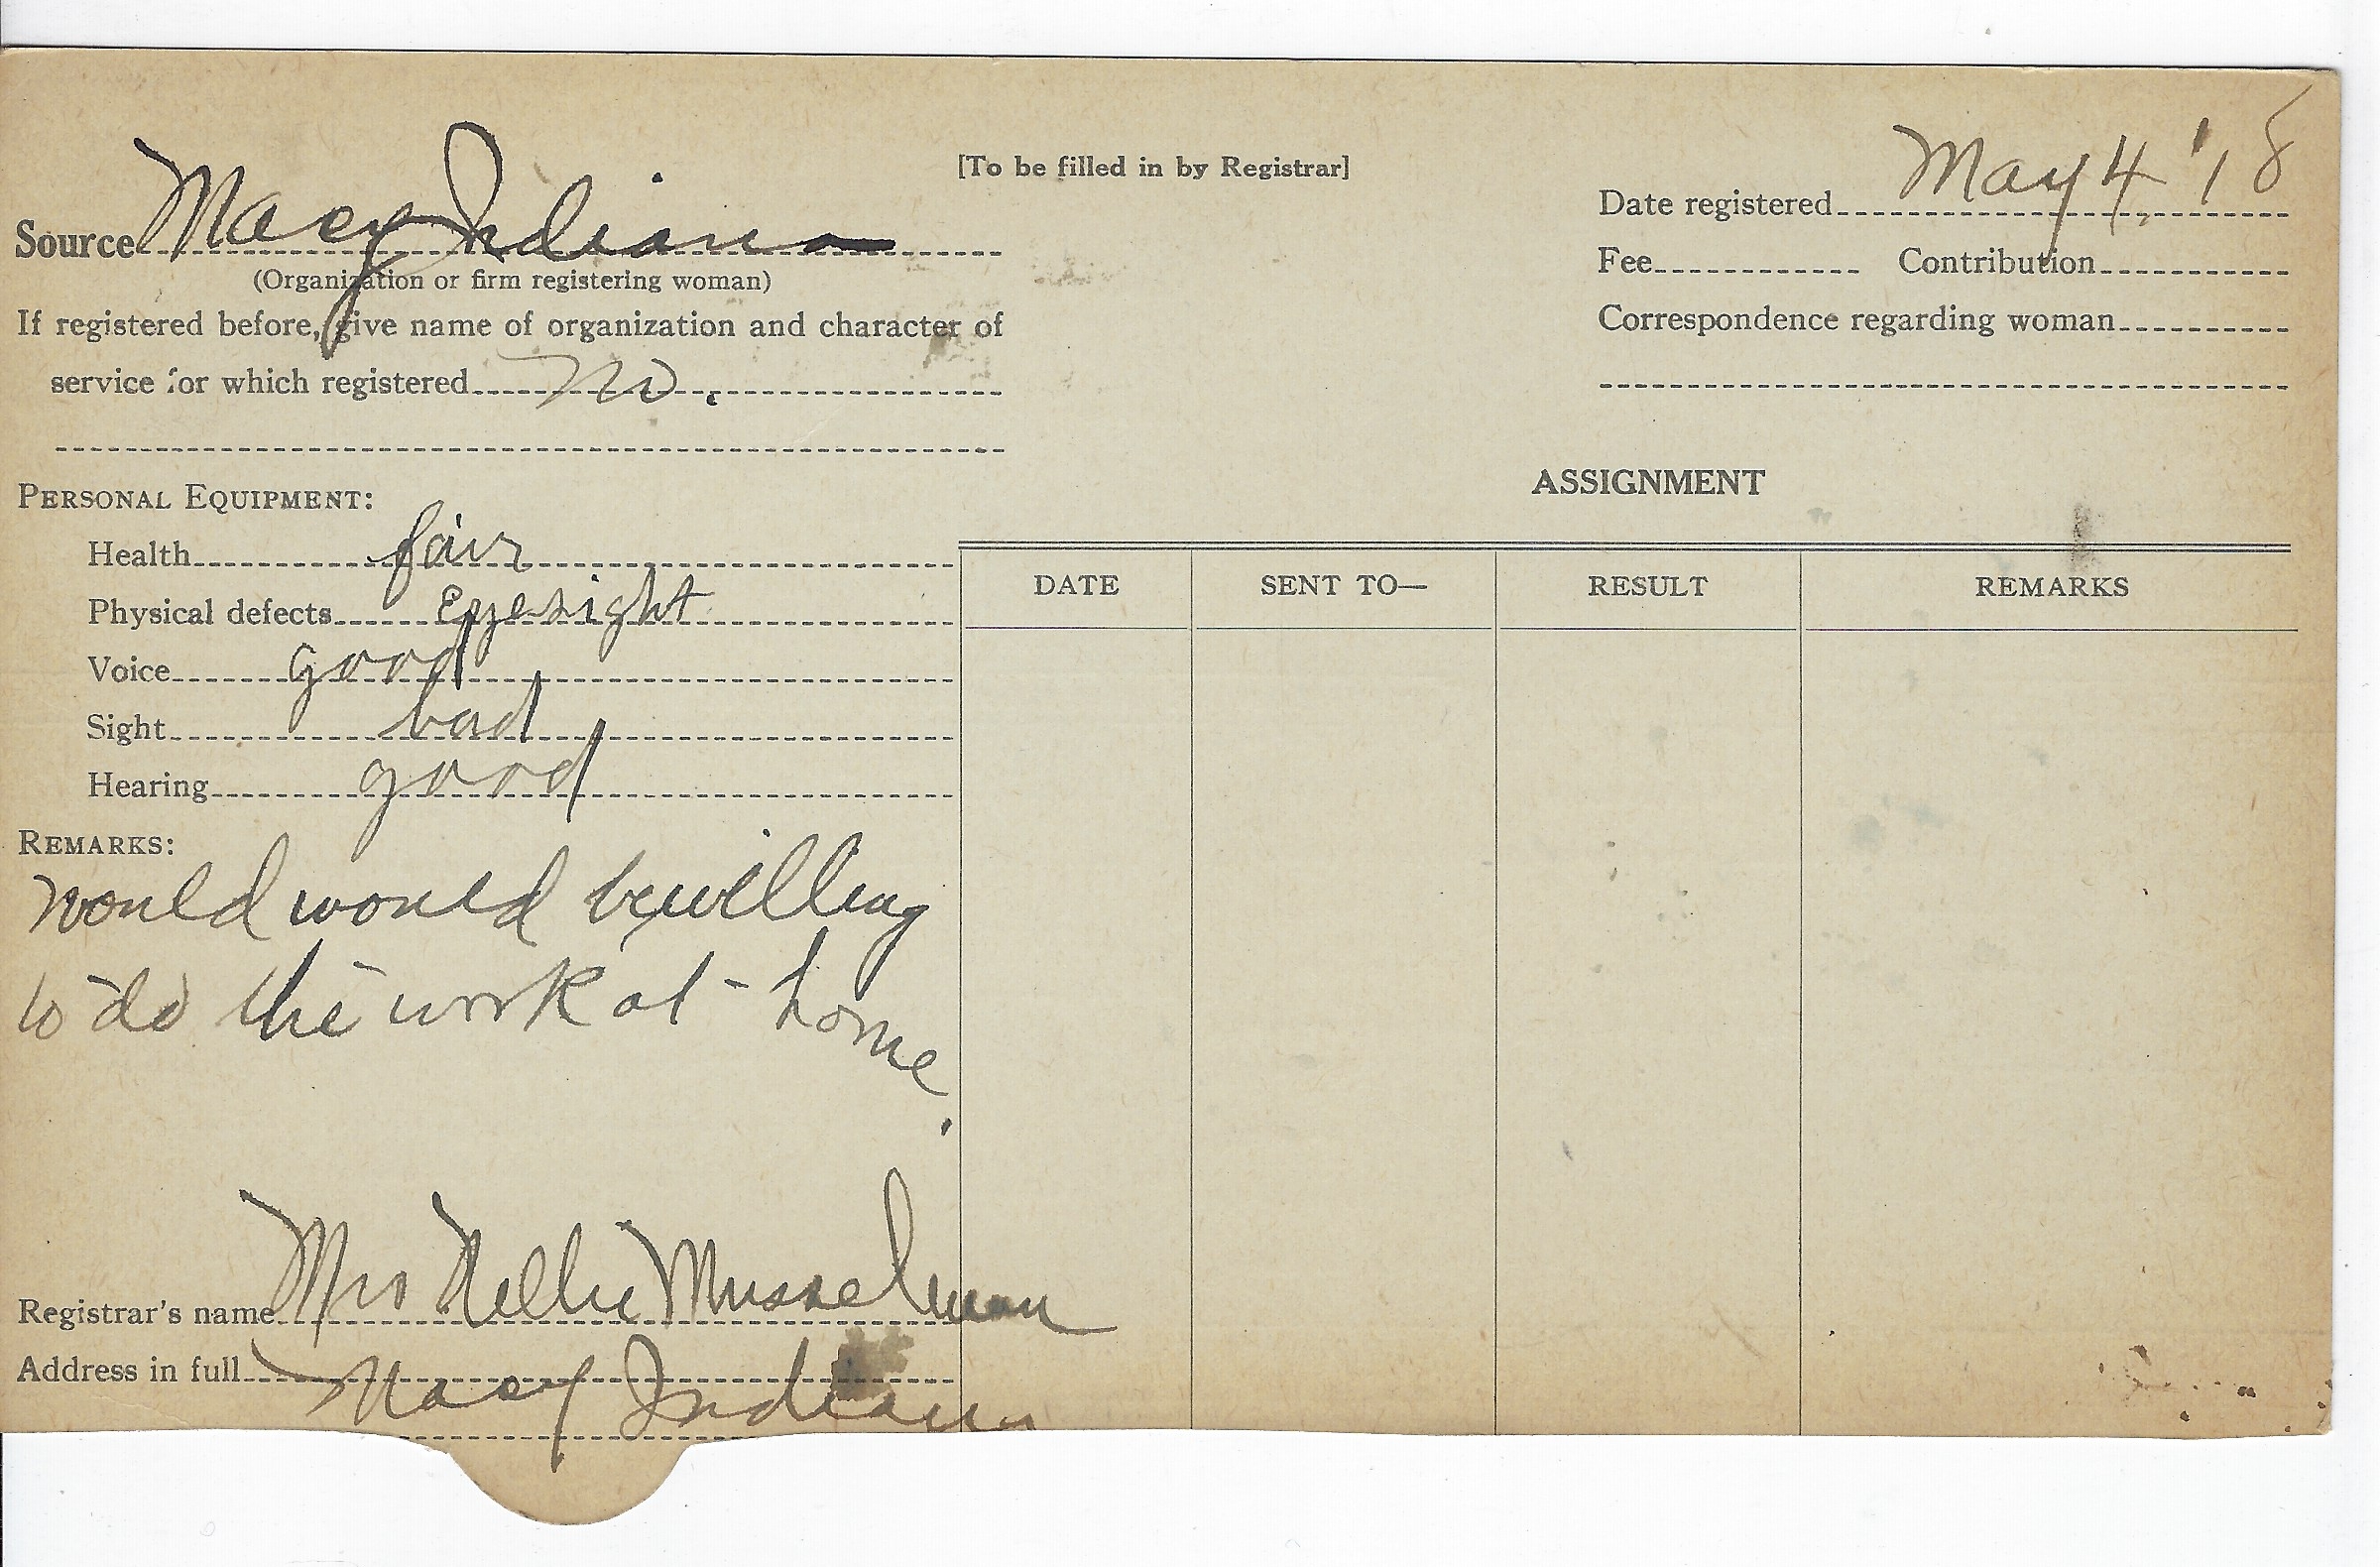 [To be filled in by Registrar]
Source Macy Indiana
(Organization or firm registering woman)
If registered before, give name of organization and character of
service for which registered no.
Date registered May 4, '18
Fee Contribution
Correspondence regarding woman
PERSONAL EQUIPMENT:
Health fair
Physical defects Eyesight
Voice good
Sight bad
Hearing good
REMARKS:
would would be willing
to do the work at home.
Registrar's name Mrs Nellie Musselman
Address in full Macy Indiana
ASSIGNMENT
DATE SENT TO— RESULT REMARKS